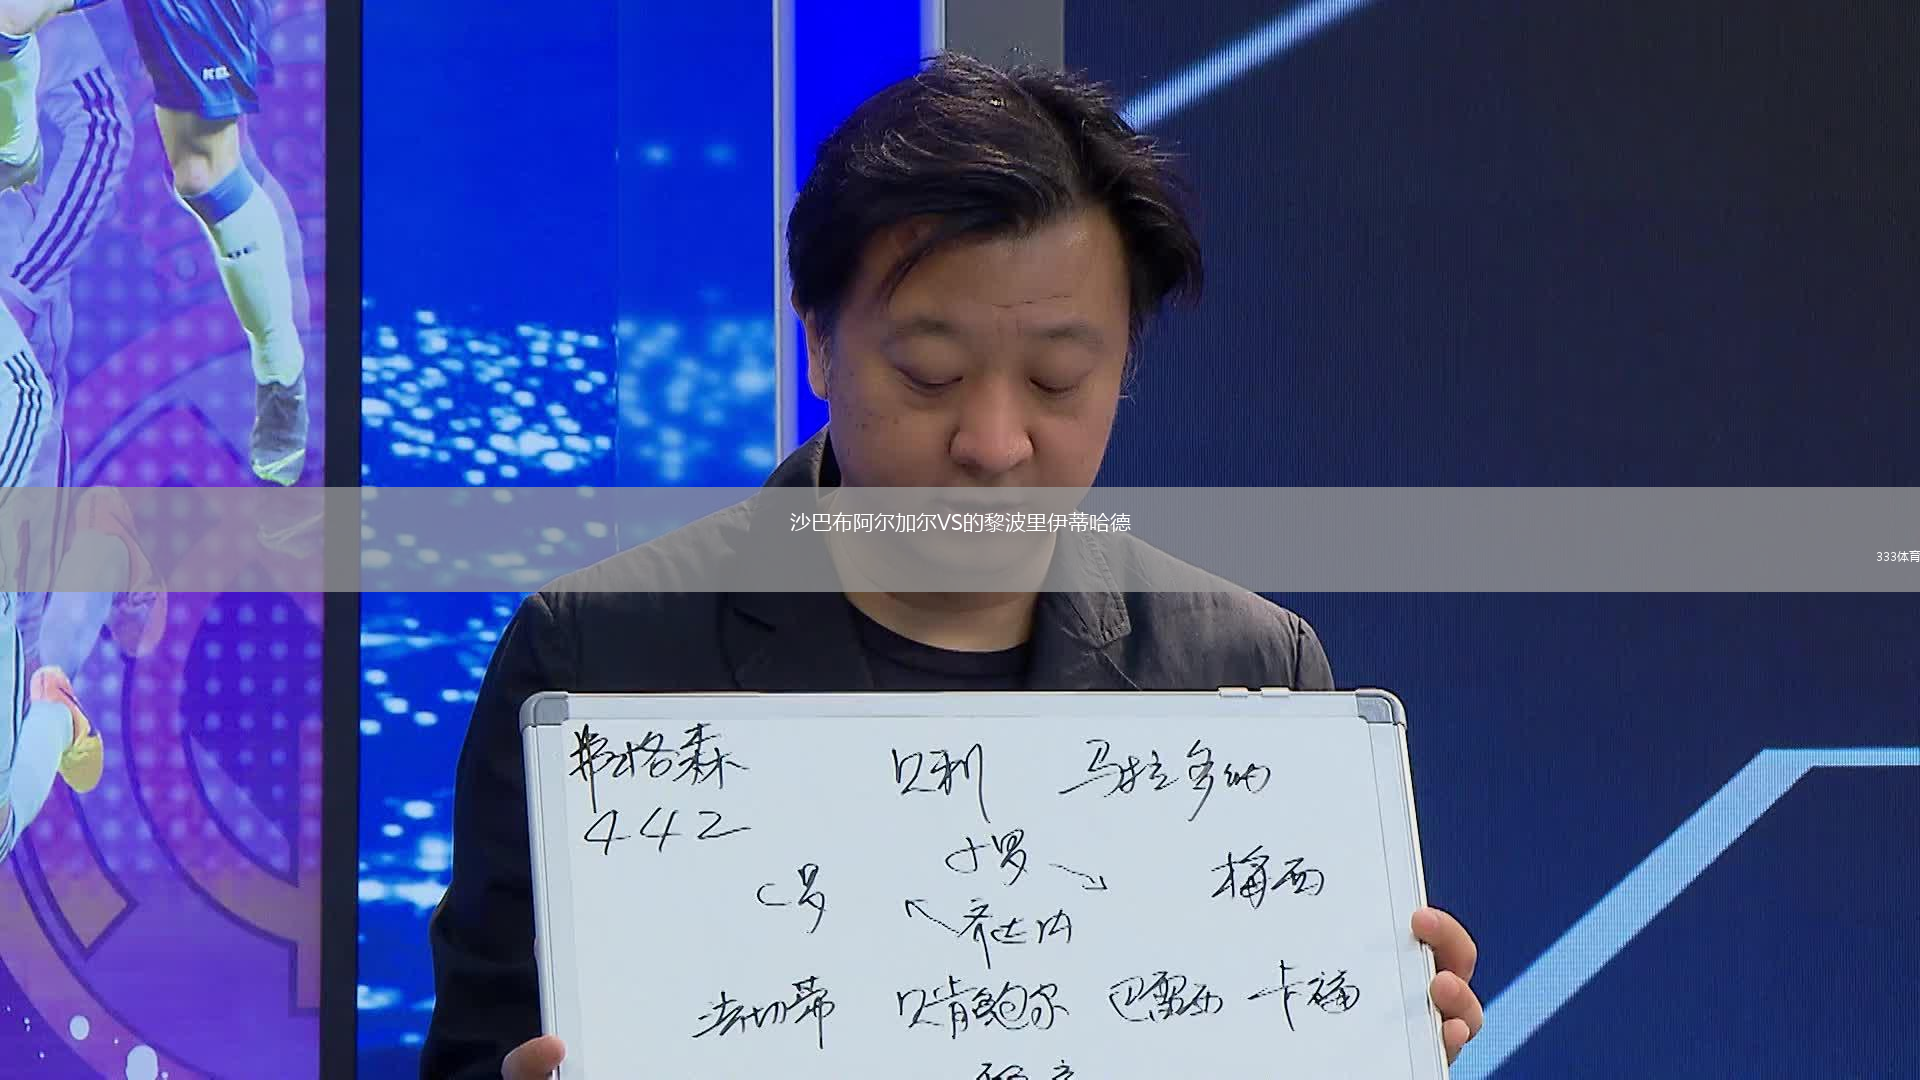 KEL
沙巴布阿尔加尔VS的黎波里伊蒂哈德
333体育
弗格森 贝利 马拉多纳
442
小罗
C罗 梅西
齐达内
法切蒂 贝肯鲍尔 巴雷西 卡福